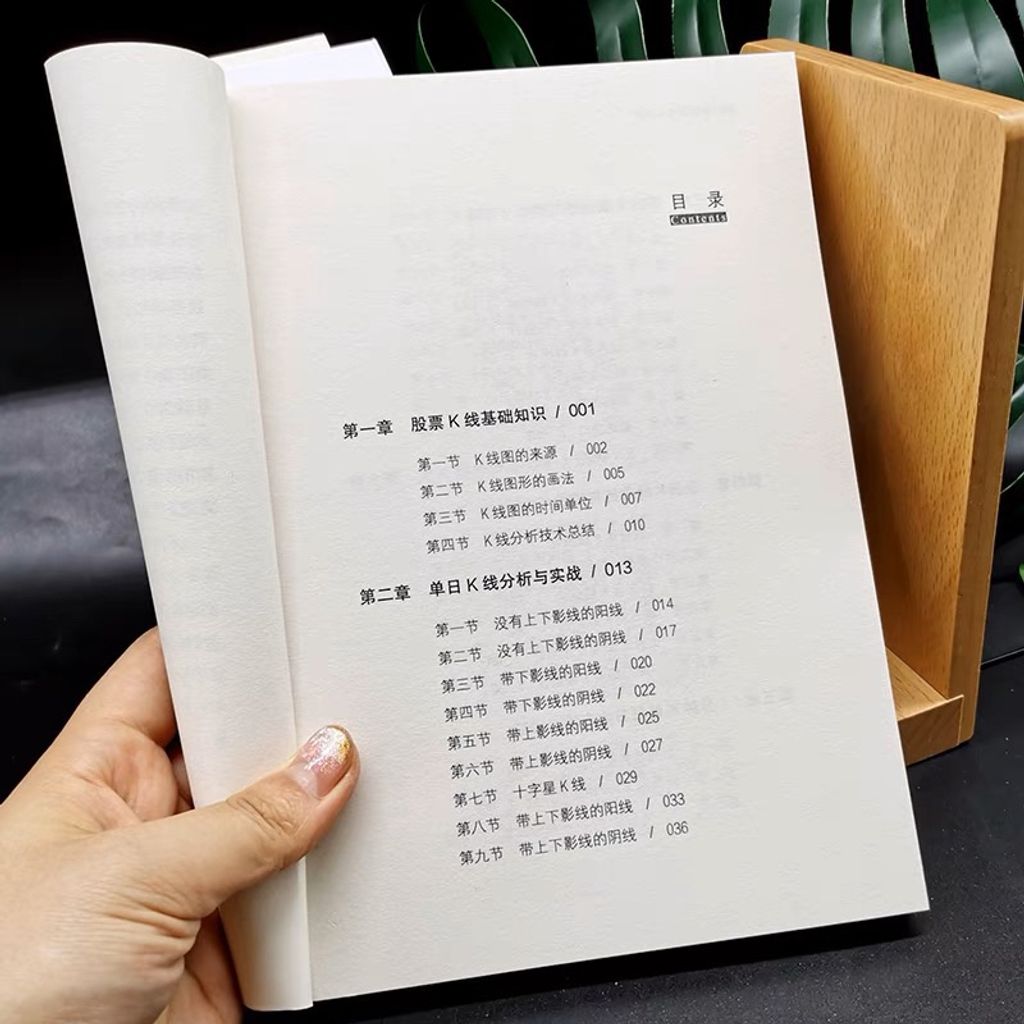 目 录
Contents
第一章 股票K线基础知识 / 001
第一节 K线图的来源 / 002
第二节 K线图形的画法 / 005
第三节 K线图的时间单位 / 007
第四节 K线分析技术总结 / 010
第二章 单日K线分析与实战 / 013
第一节 没有上下影线的阳线 / 014
第二节 没有上下影线的阴线 / 017
第三节 带下影线的阳线 / 020
第四节 带下影线的阴线 / 022
第五节 带上影线的阳线 / 025
第六节 带上影线的阴线 / 027
第七节 十字星K线 / 029
第八节 带上下影线的阳线 / 033
第九节 带上下影线的阴线 / 036